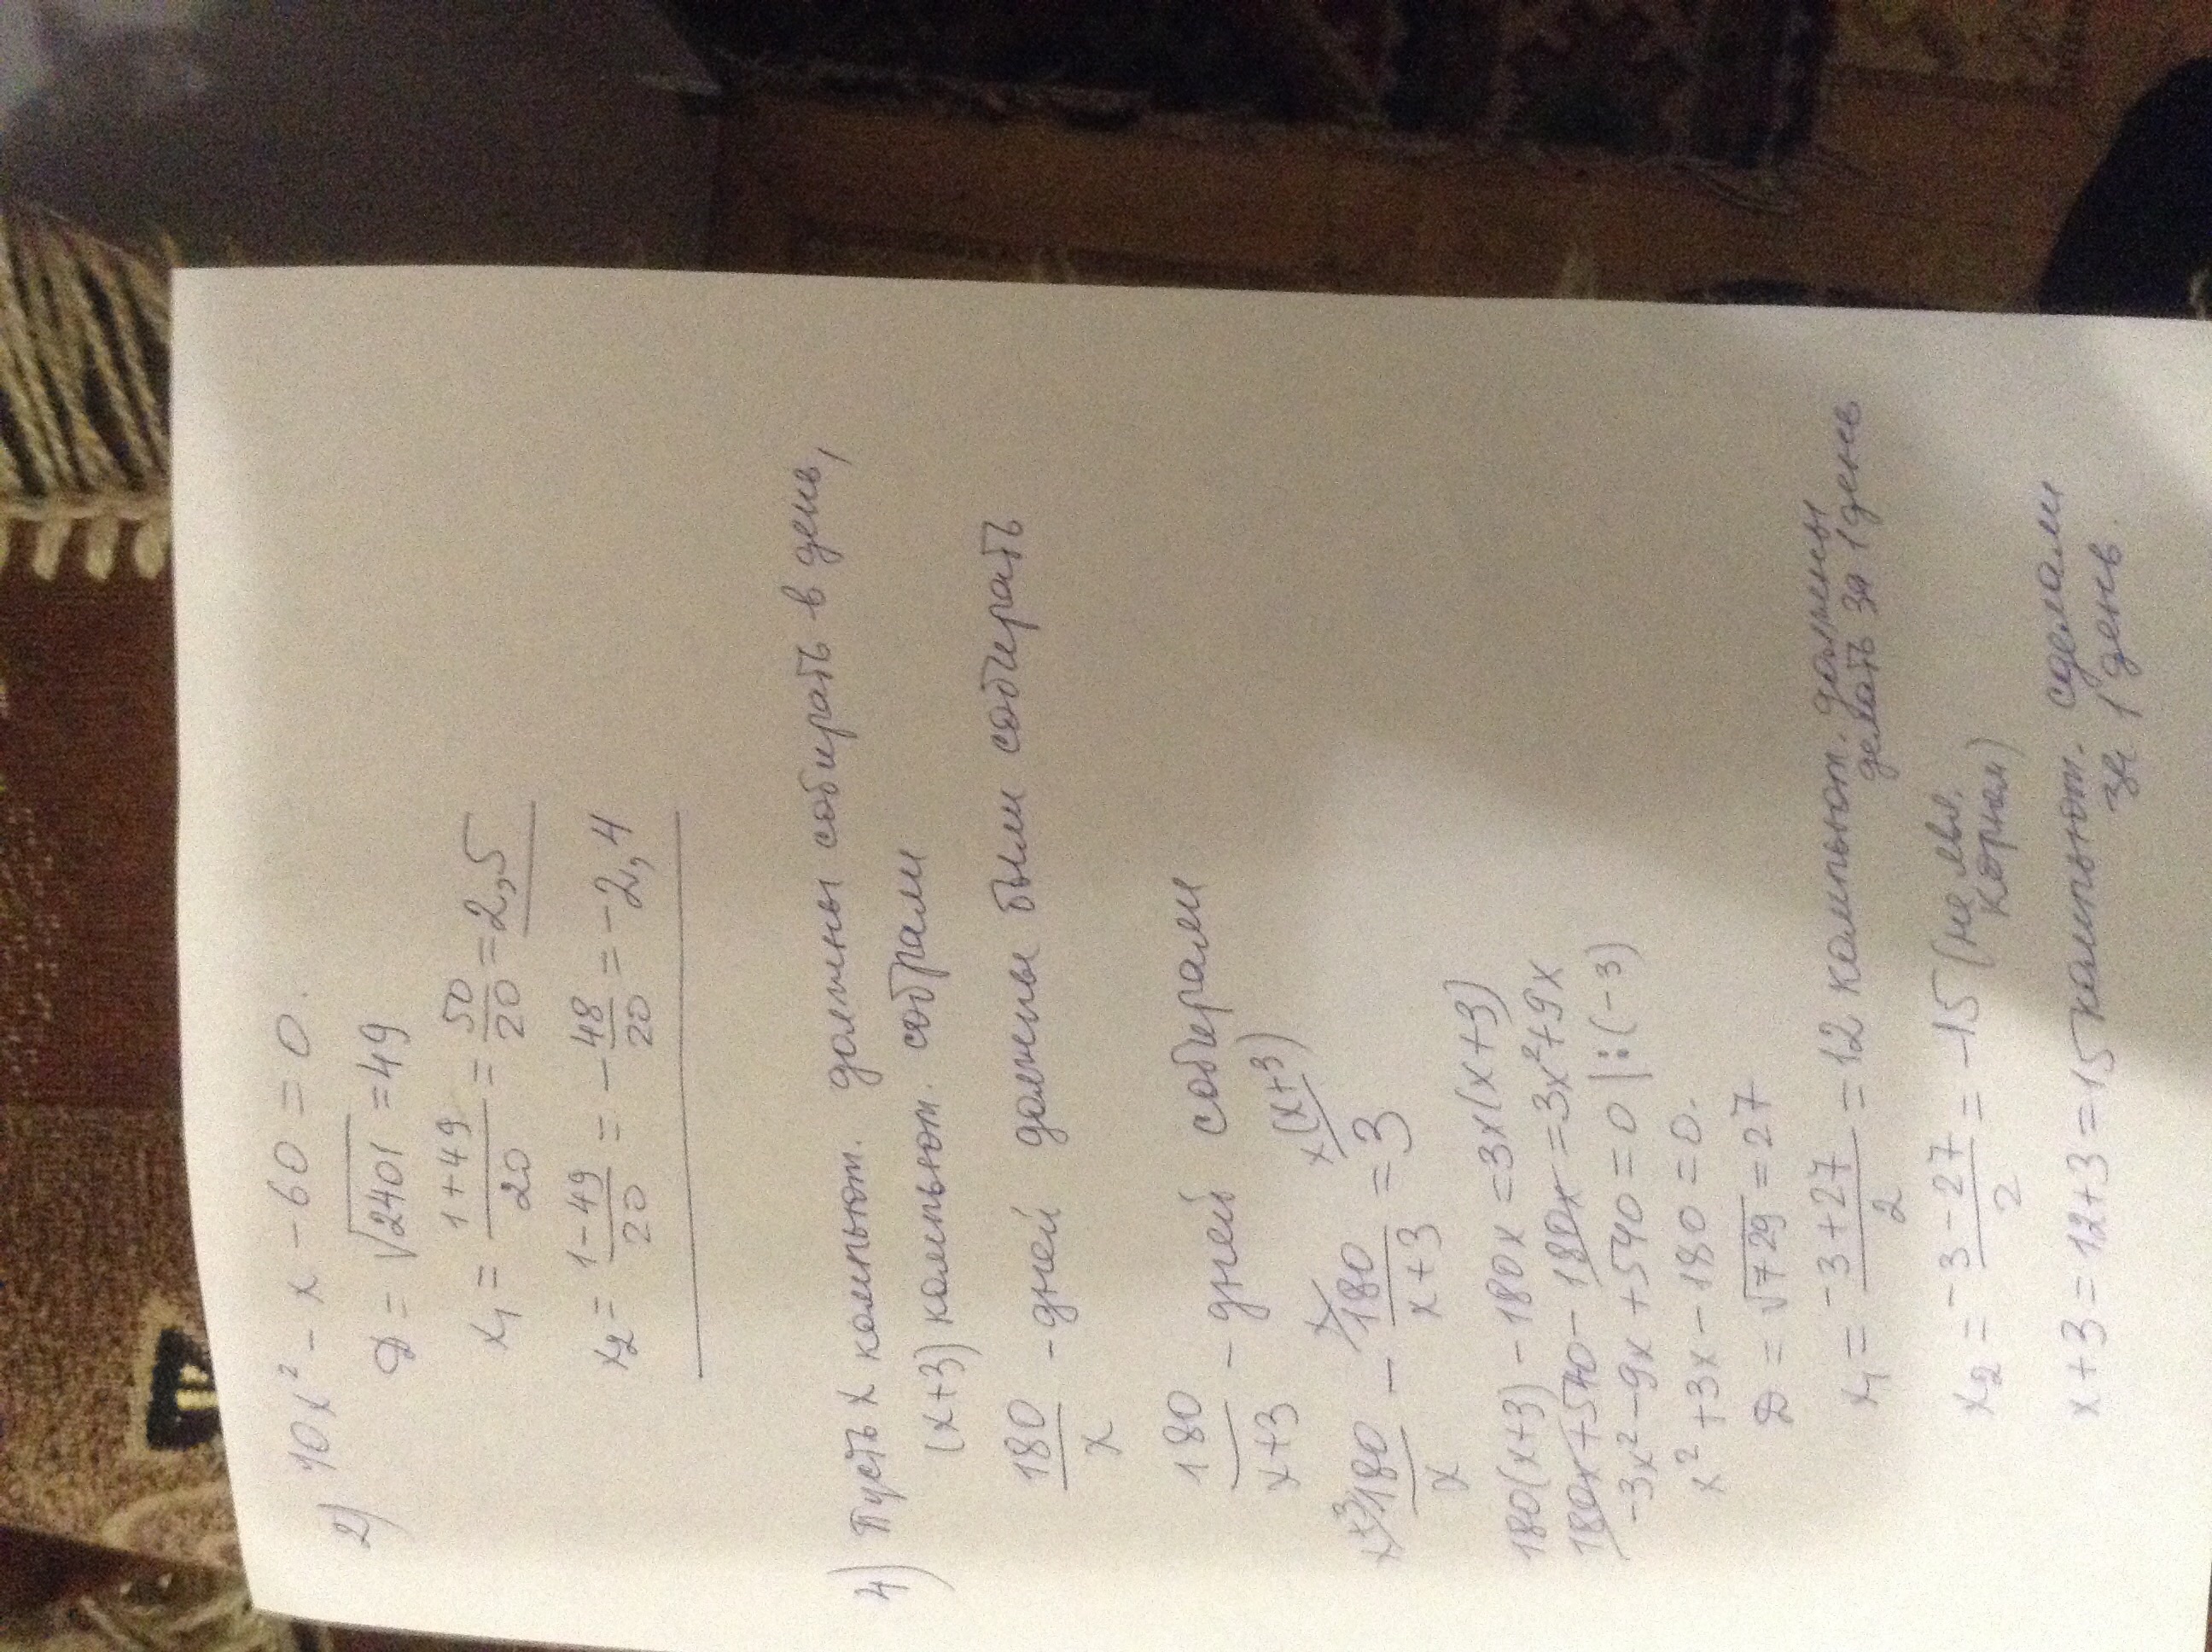 2) 10x² - x - 60 = 0.
D = √2401 = 49
x₁ = (1+49)/20 = 50/20 = 2,5
x₂ = (1-49)/20 = -48/20 = -2,4
4) Пусть x компьют. должны собирать в день,
(x+3) компьют. собрали
180/x - дней должны были собирать
180/(x+3) - дней собирали
x+3 x x(x+3)
180/x - 180/(x+3) = 3
180(x+3) - 180x = 3x(x+3)
180x+540 - 180x = 3x²+9x
-3x² - 9x + 540 = 0 |:(-3)
x² + 3x - 180 = 0.
D = √729 = 27
x₁ = (-3+27)/2 = 12 компьют. должны
делать за 1 день
x₂ = (-3-27)/2 = -15 (не явл.
корнем)
x+3 = 12+3 = 15 компьют. сделали
за 1 день.